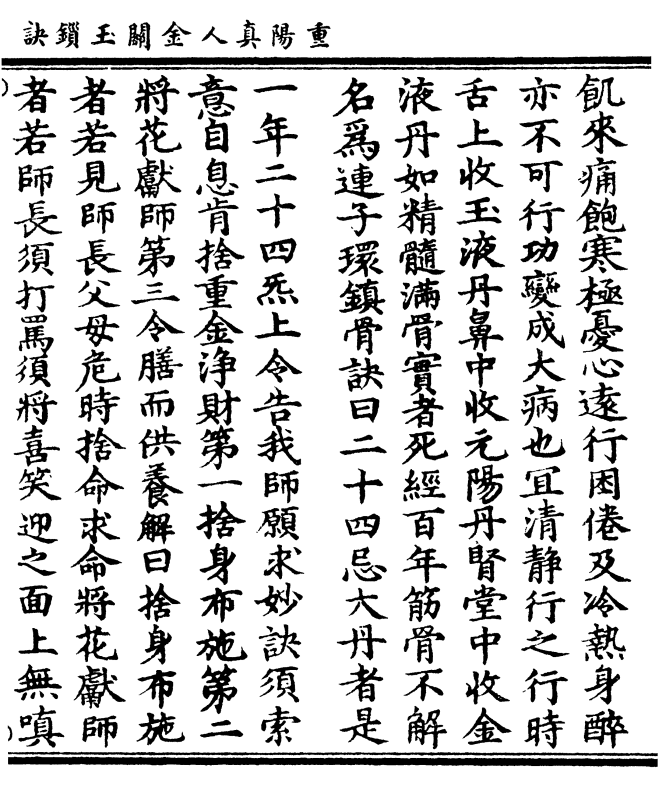 重陽真人金關玉鎖訣
飢來痛飽寒極憂心遠行困倦及冷熱身醉
亦不可行功變成大病也冝清靜行之行時
舌上收玉液丹鼻中收元陽丹腎堂中收金
液丹如精髓滿骨實者死經百年筋骨不解
名爲連子環鎮骨訣曰二十四忌大丹者是
一年二十四炁上令告我師願求妙訣須索
意自息肯捨重金浄財第一捨身布施第二
將花獻師第三令膳而供養解曰捨身布施
者若見師長父母危時捨命求命將花獻師
者若師長須打罵須將喜笑迎之面上無嗔